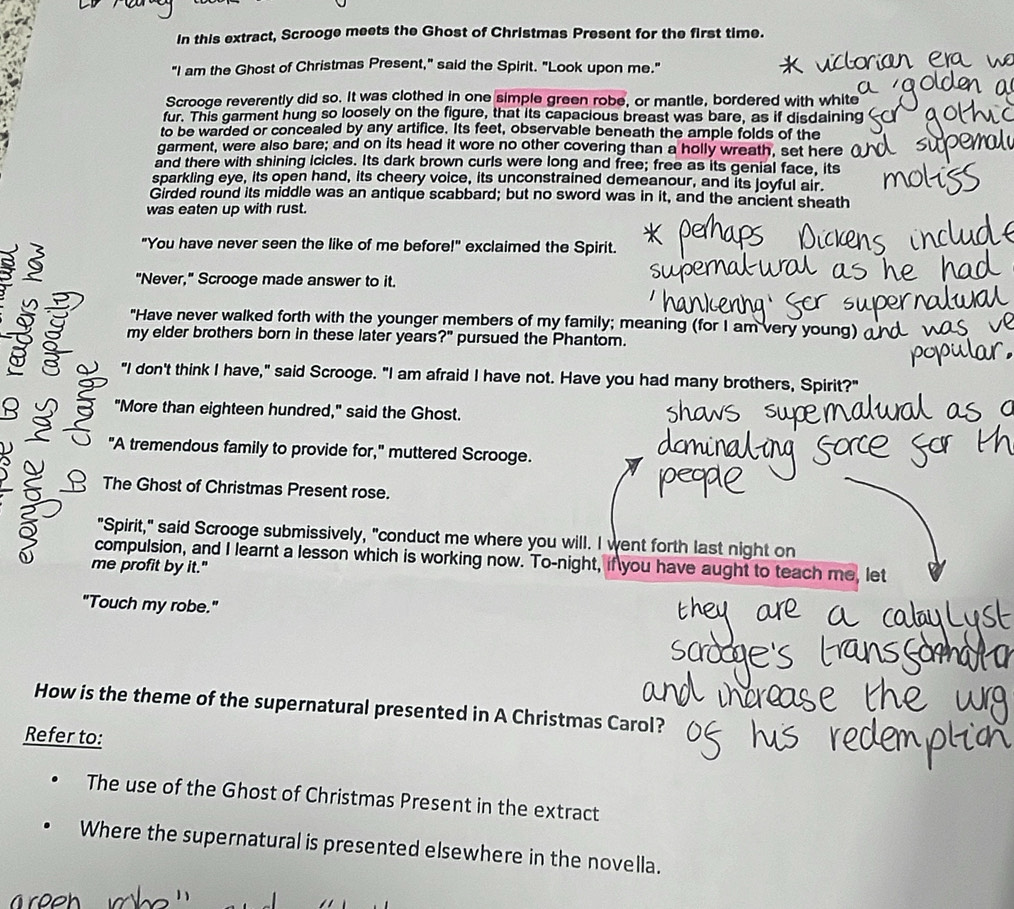 In this extract, Scrooge meets the Ghost of Christmas Present for the first time.
"I am the Ghost of Christmas Present," said the Spirit. "Look upon me."
Scrooge reverently did so. It was clothed in one simple green robe, or mantle, bordered with white
fur. This garment hung so loosely on the figure, that its capacious breast was bare, as if disdaining
to be warded or concealed by any artifice. Its feet, observable beneath the ample folds of the
garment, were also bare; and on its head it wore no other covering than a holly wreath, set here
and there with shining icicles. Its dark brown curls were long and free; free as its genial face, its
sparkling eye, its open hand, its cheery voice, its unconstrained demeanour, and its joyful air.
Girded round its middle was an antique scabbard; but no sword was in it, and the ancient sheath
was eaten up with rust.
"You have never seen the like of me before!" exclaimed the Spirit.
"Never," Scrooge made answer to it.
"Have never walked forth with the younger members of my family; meaning (for I am very young)
my elder brothers born in these later years?" pursued the Phantom.
"I don't think I have," said Scrooge. "I am afraid I have not. Have you had many brothers, Spirit?"
"More than eighteen hundred," said the Ghost.
"A tremendous family to provide for," muttered Scrooge.
The Ghost of Christmas Present rose.
"Spirit," said Scrooge submissively, "conduct me where you will. I went forth last night on
compulsion, and I learnt a lesson which is working now. To-night, if you have aught to teach me, let
me profit by it."
"Touch my robe."
How is the theme of the supernatural presented in A Christmas Carol?
Refer to:
• The use of the Ghost of Christmas Present in the extract
• Where the supernatural is presented elsewhere in the novella.
* victorian era
a 'golden
for gothic
and
* perhaps Dickens include
supernatural as he had
'hankering' for supernatural
and was
popular.
shows supernatural as
dominating force for
people
they are a cataylyst
scrooge's
and increase the
of his redemption
to readers how
everyone has capacity
to change
green robe"